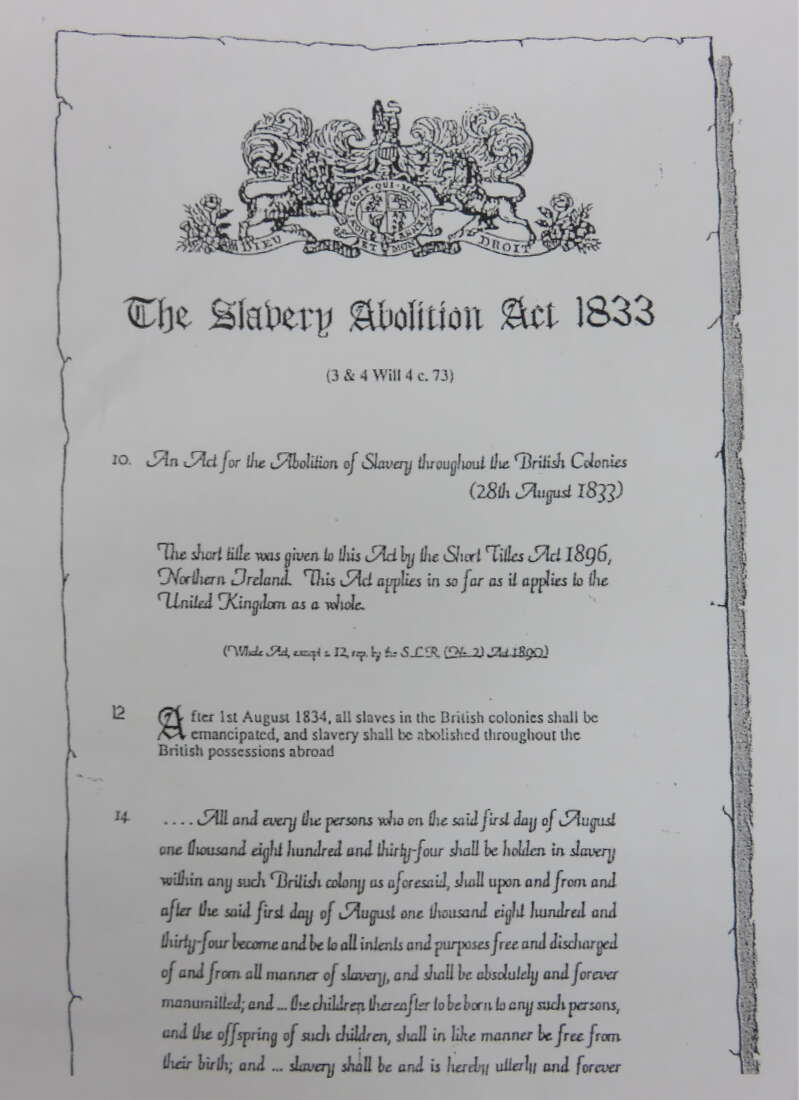 HONI SOIT QUI MAL Y PENSE
DIEU ET MON DROIT
The Slavery Abolition Act 1833
(3 & 4 Will 4 c. 73)
10. An Act for the Abolition of Slavery throughout the British Colonies
(28th August 1833)
The short title was given to this Act by the Short Titles Act 1896,
Northern Ireland. This Act applies in so far as it applies to the
United Kingdom as a whole.
(Whole Act, except s. 12, rep. by the S.L.R. (No 2) Act 1890)
12 After 1st August 1834, all slaves in the British colonies shall be
emancipated, and slavery shall be abolished throughout the
British possessions abroad
14 .... All and every the persons who on the said first day of August
one thousand eight hundred and thirty-four shall be holden in slavery
within any such British colony as aforesaid, shall upon and from and
after the said first day of August one thousand eight hundred and
thirty-four become and be to all intents and purposes free and discharged
of and from all manner of slavery, and shall be absolutely and forever
manumitted; and ... the children thereafter to be born to any such persons,
and the offspring of such children, shall in like manner be free from
their birth; and ... slavery shall be and is hereby utterly and forever